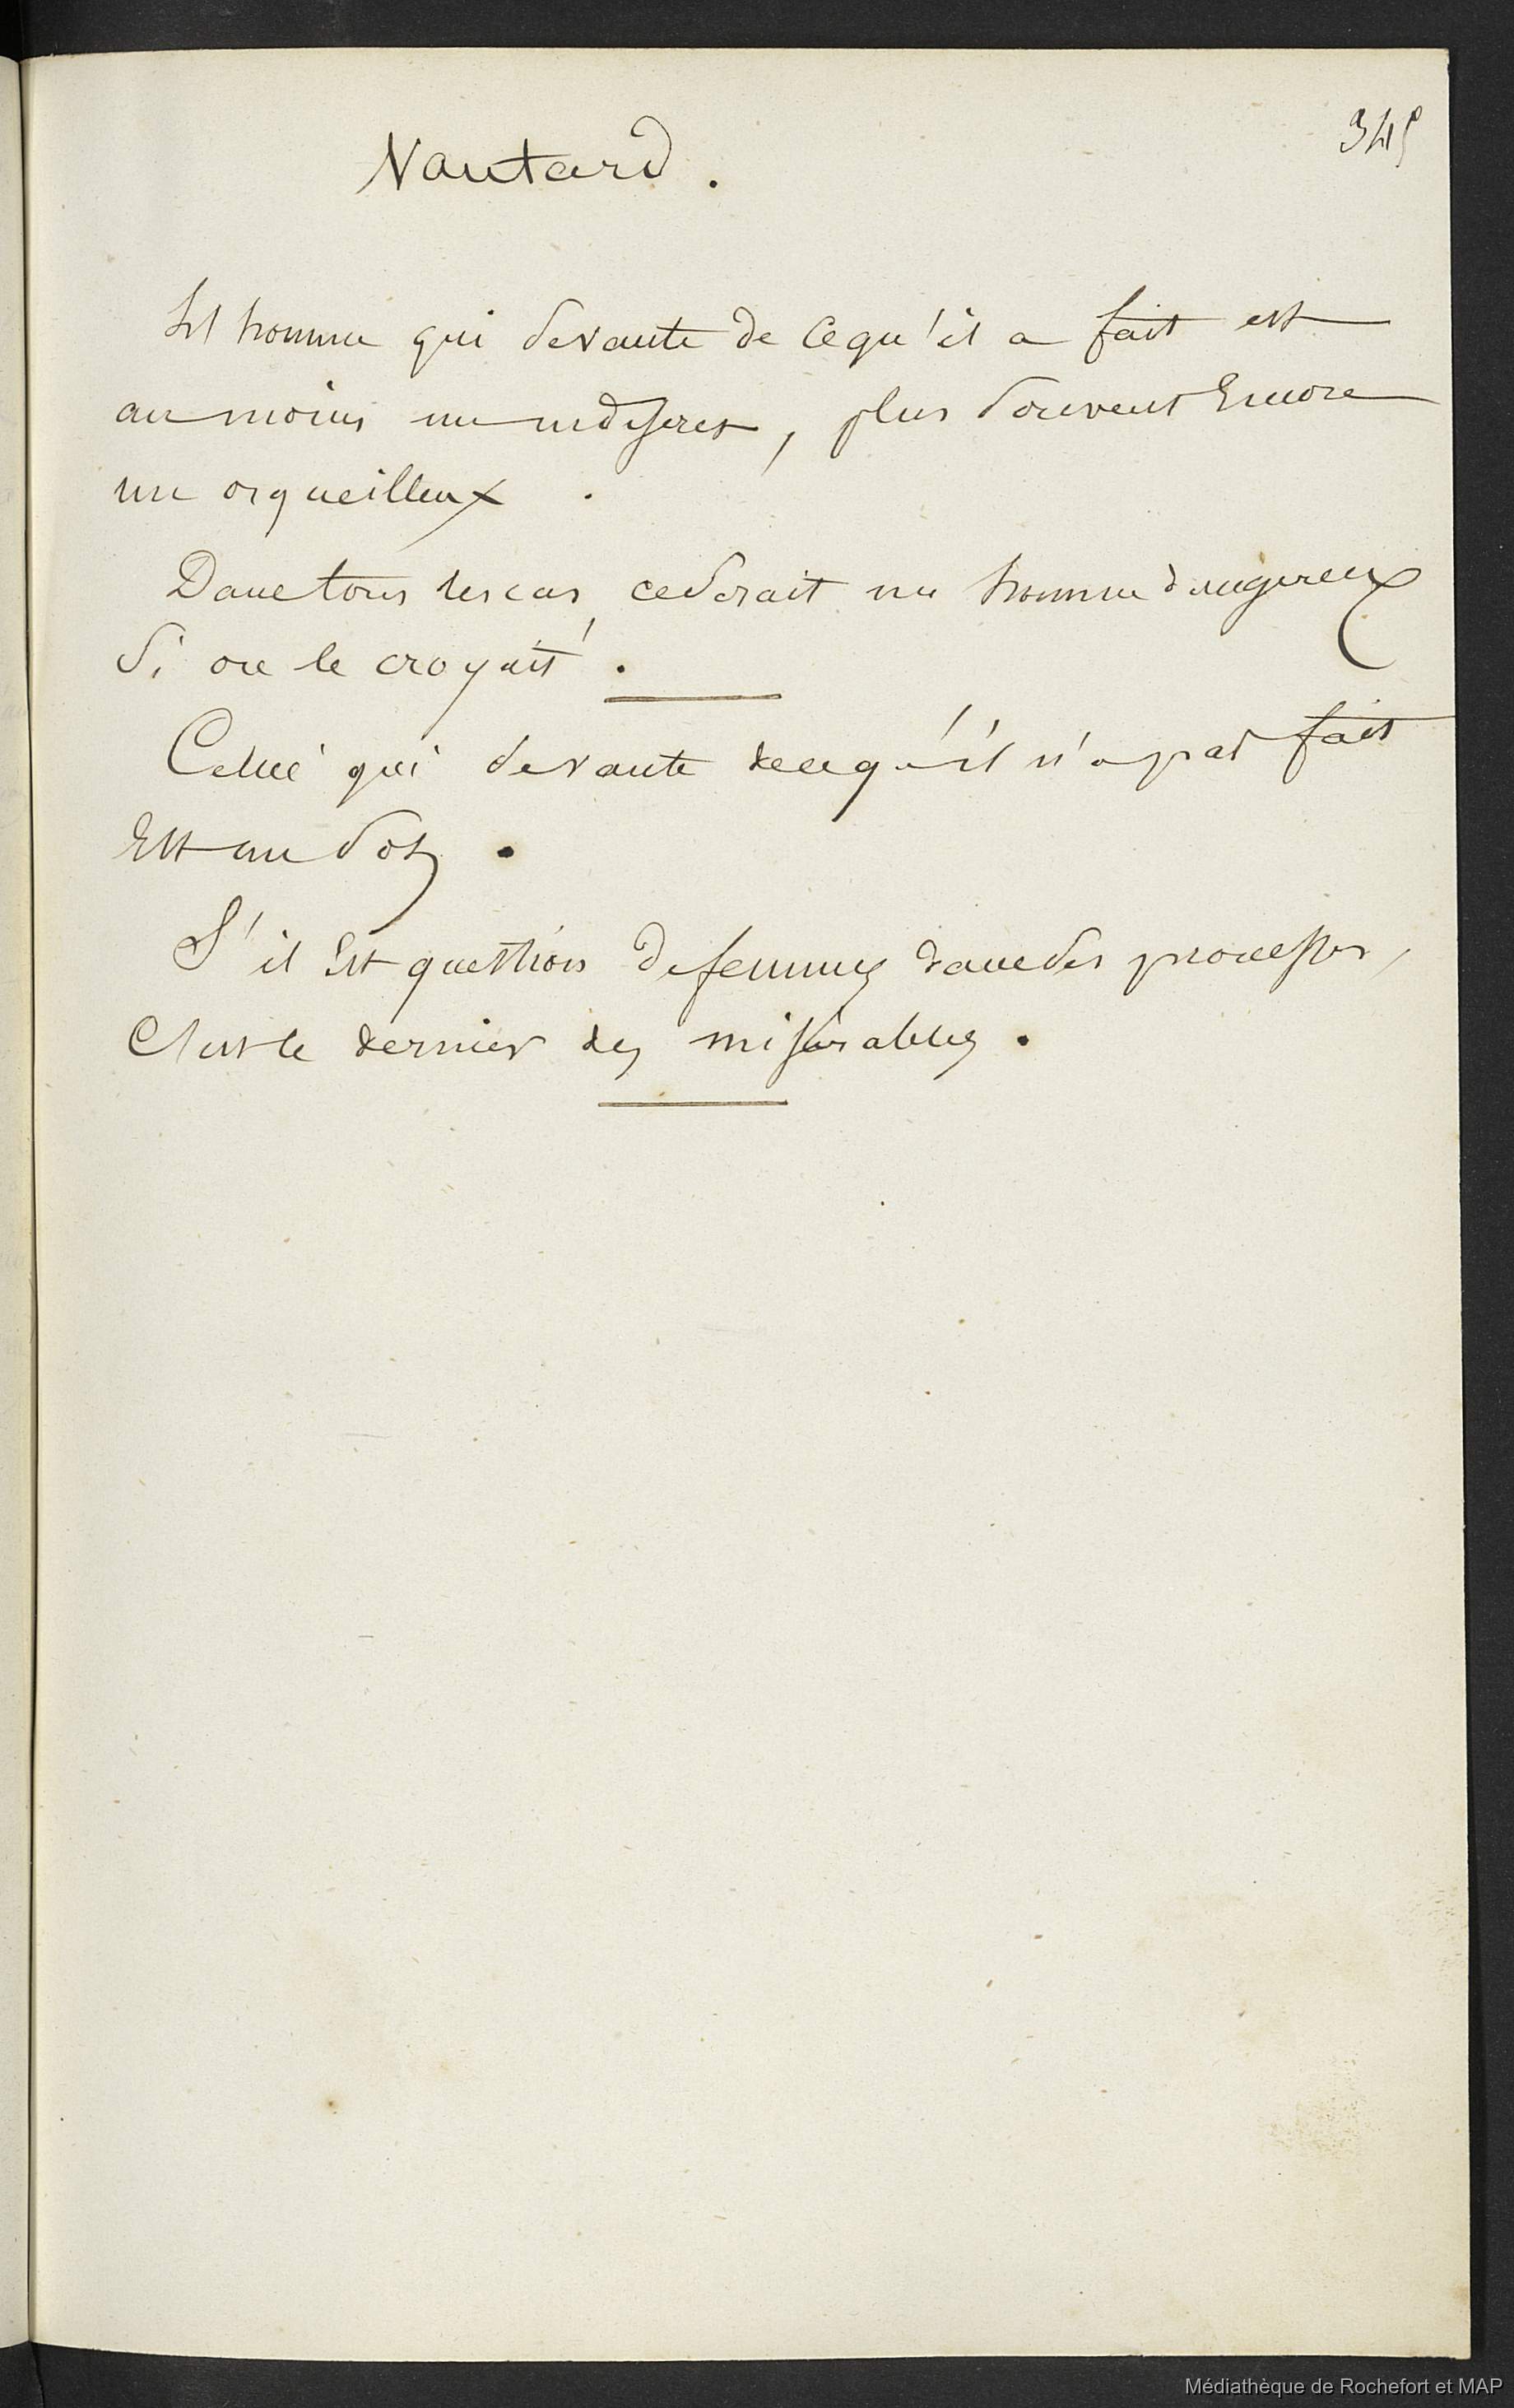 345
Vantard.
Un homme qui se vante de ce qu'il a fait est
au moins un indiscret, plus souvent Encore
un orgueilleux.
Dans tous les cas, ce serait un homme dangereux
Si on le croyait.
Celui qui se vante de ce qu'il n'a pas fait
Est un sot.
S'il Est question de femmes dans ses prouesses,
C'est le dernier des misérables.
Médiathèque de Rochefort et MAP